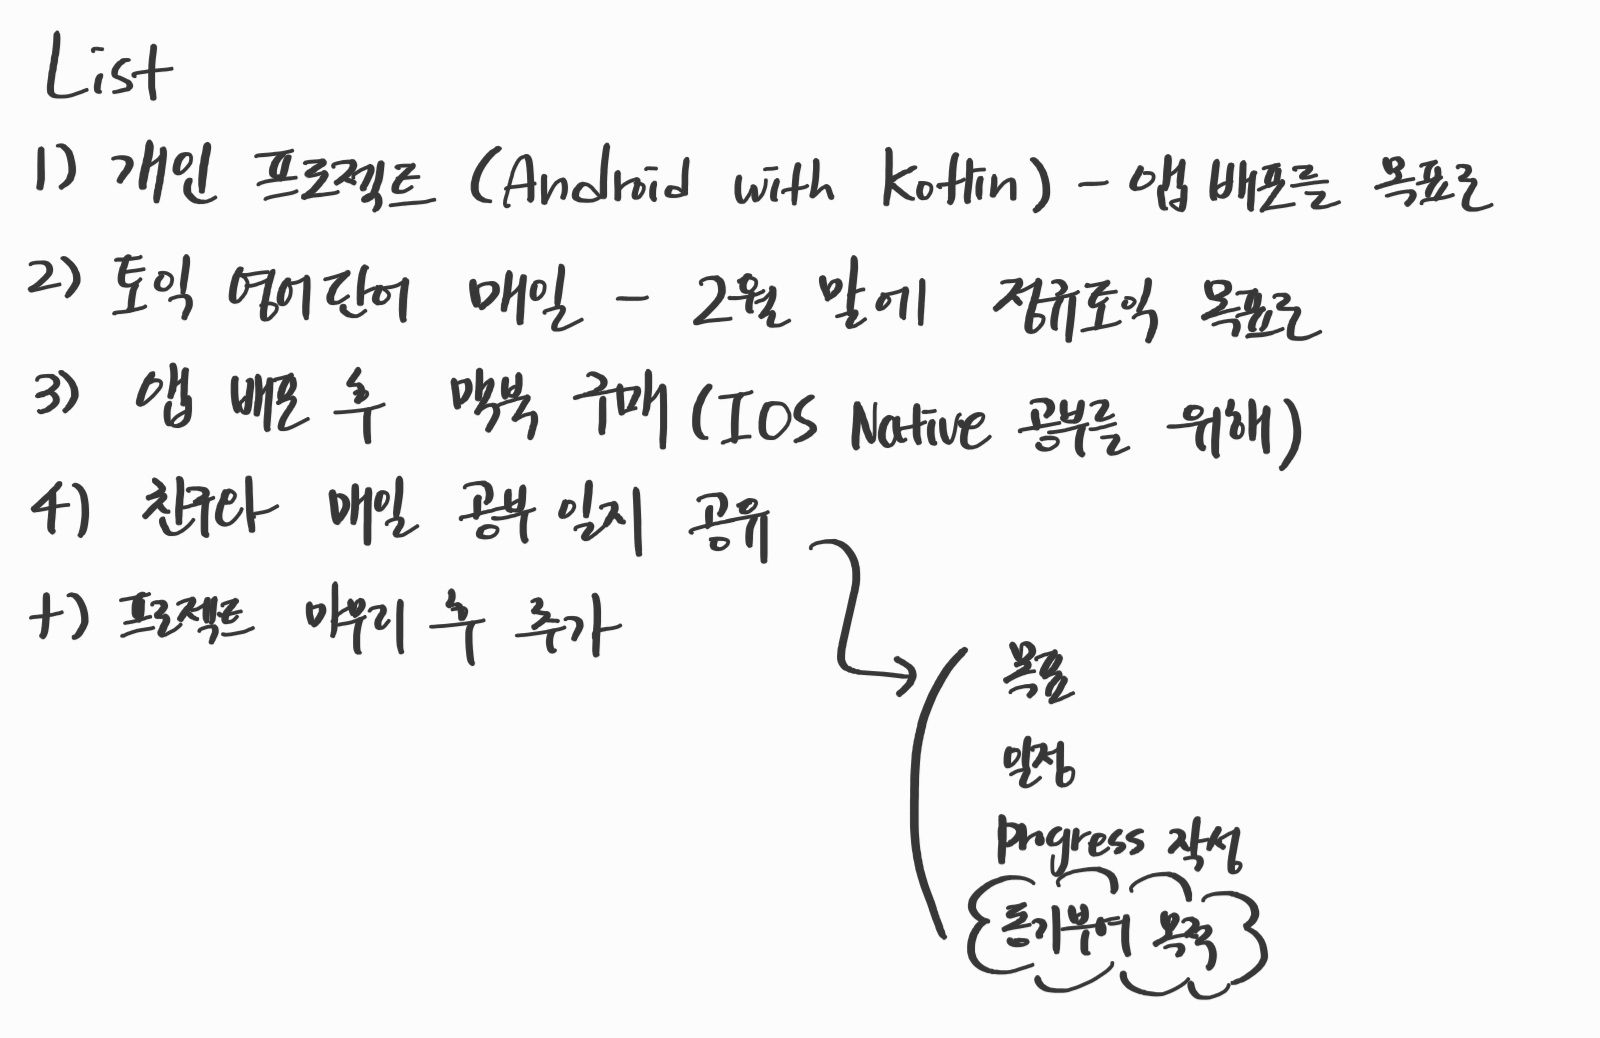 List
1) 개인 프로젝트 (Android with Kotlin) - 앱 배포를 목표로
2) 토익 영어단어 매일 - 2월 말에 정규토익 목표로
3) 앱 배포 후 맥북 구매 (IOS Native 공부를 위해)
4) 친구와 매일 공부 일지 공유
+) 프로젝트 마무리 후 추가
목표
일정
Progress 작성
동기부여 목적